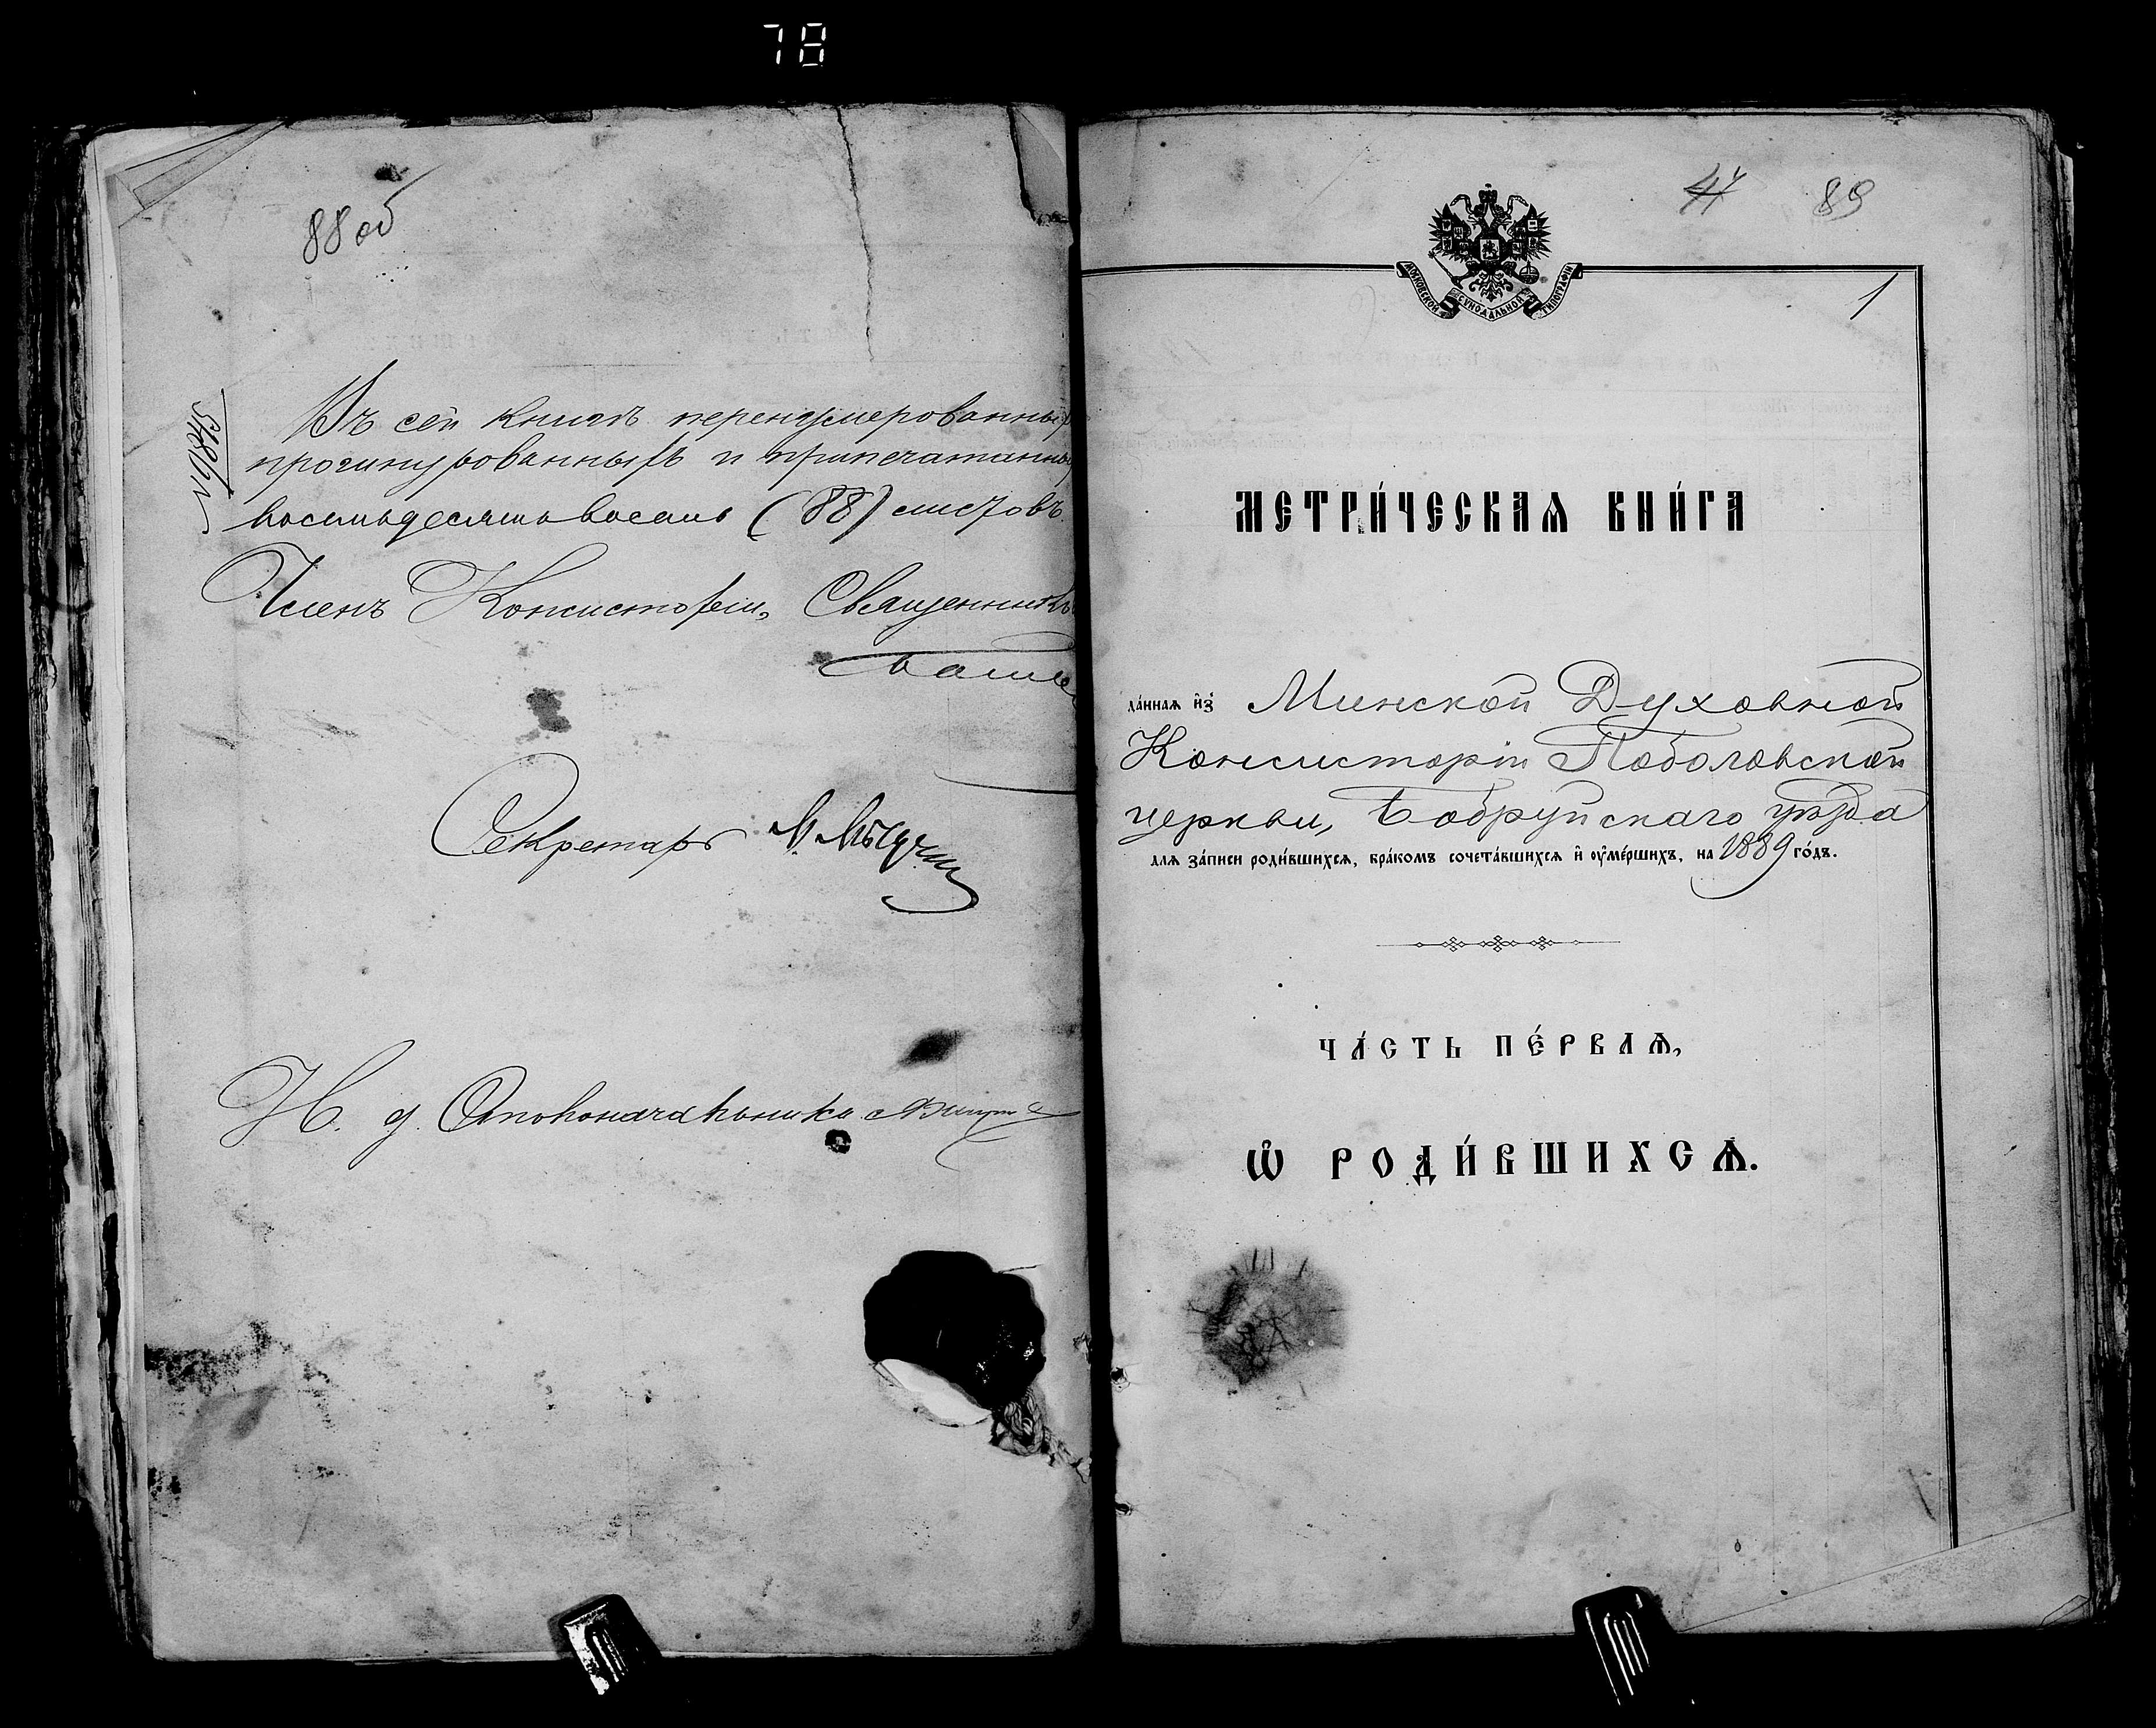 78
88 об
№ 9845
Въ сей книгѣ перенумерованныхъ
прошнурованныхъ и припечатанныхъ
восемьдесятъ восемь (88) листовъ.
Членъ Консисторіи, Священникъ
Секретарь
И. д. Столоначальника
89
МОСКОВСКОЙ СѴНОДАЛЬНОЙ ТИПОГРАФІИ
1
МЕТРИ́ЧЕСКАѦ КНИ́ГА
да́ннаѧ и҆з̾ Минской Духовной
Консисторіи Поболовской
церкви, Бобруйскаго уѣзда
для за́писи роди́вшихсѧ, бра́комъ сочета́вшихсѧ и҆ оу҆ме́ршихъ, на 1889 го́дъ.
ЧА́СТЬ ПЕ́РВАѦ,
Ѡ҆ РОДИ́ВШИХСѦ.